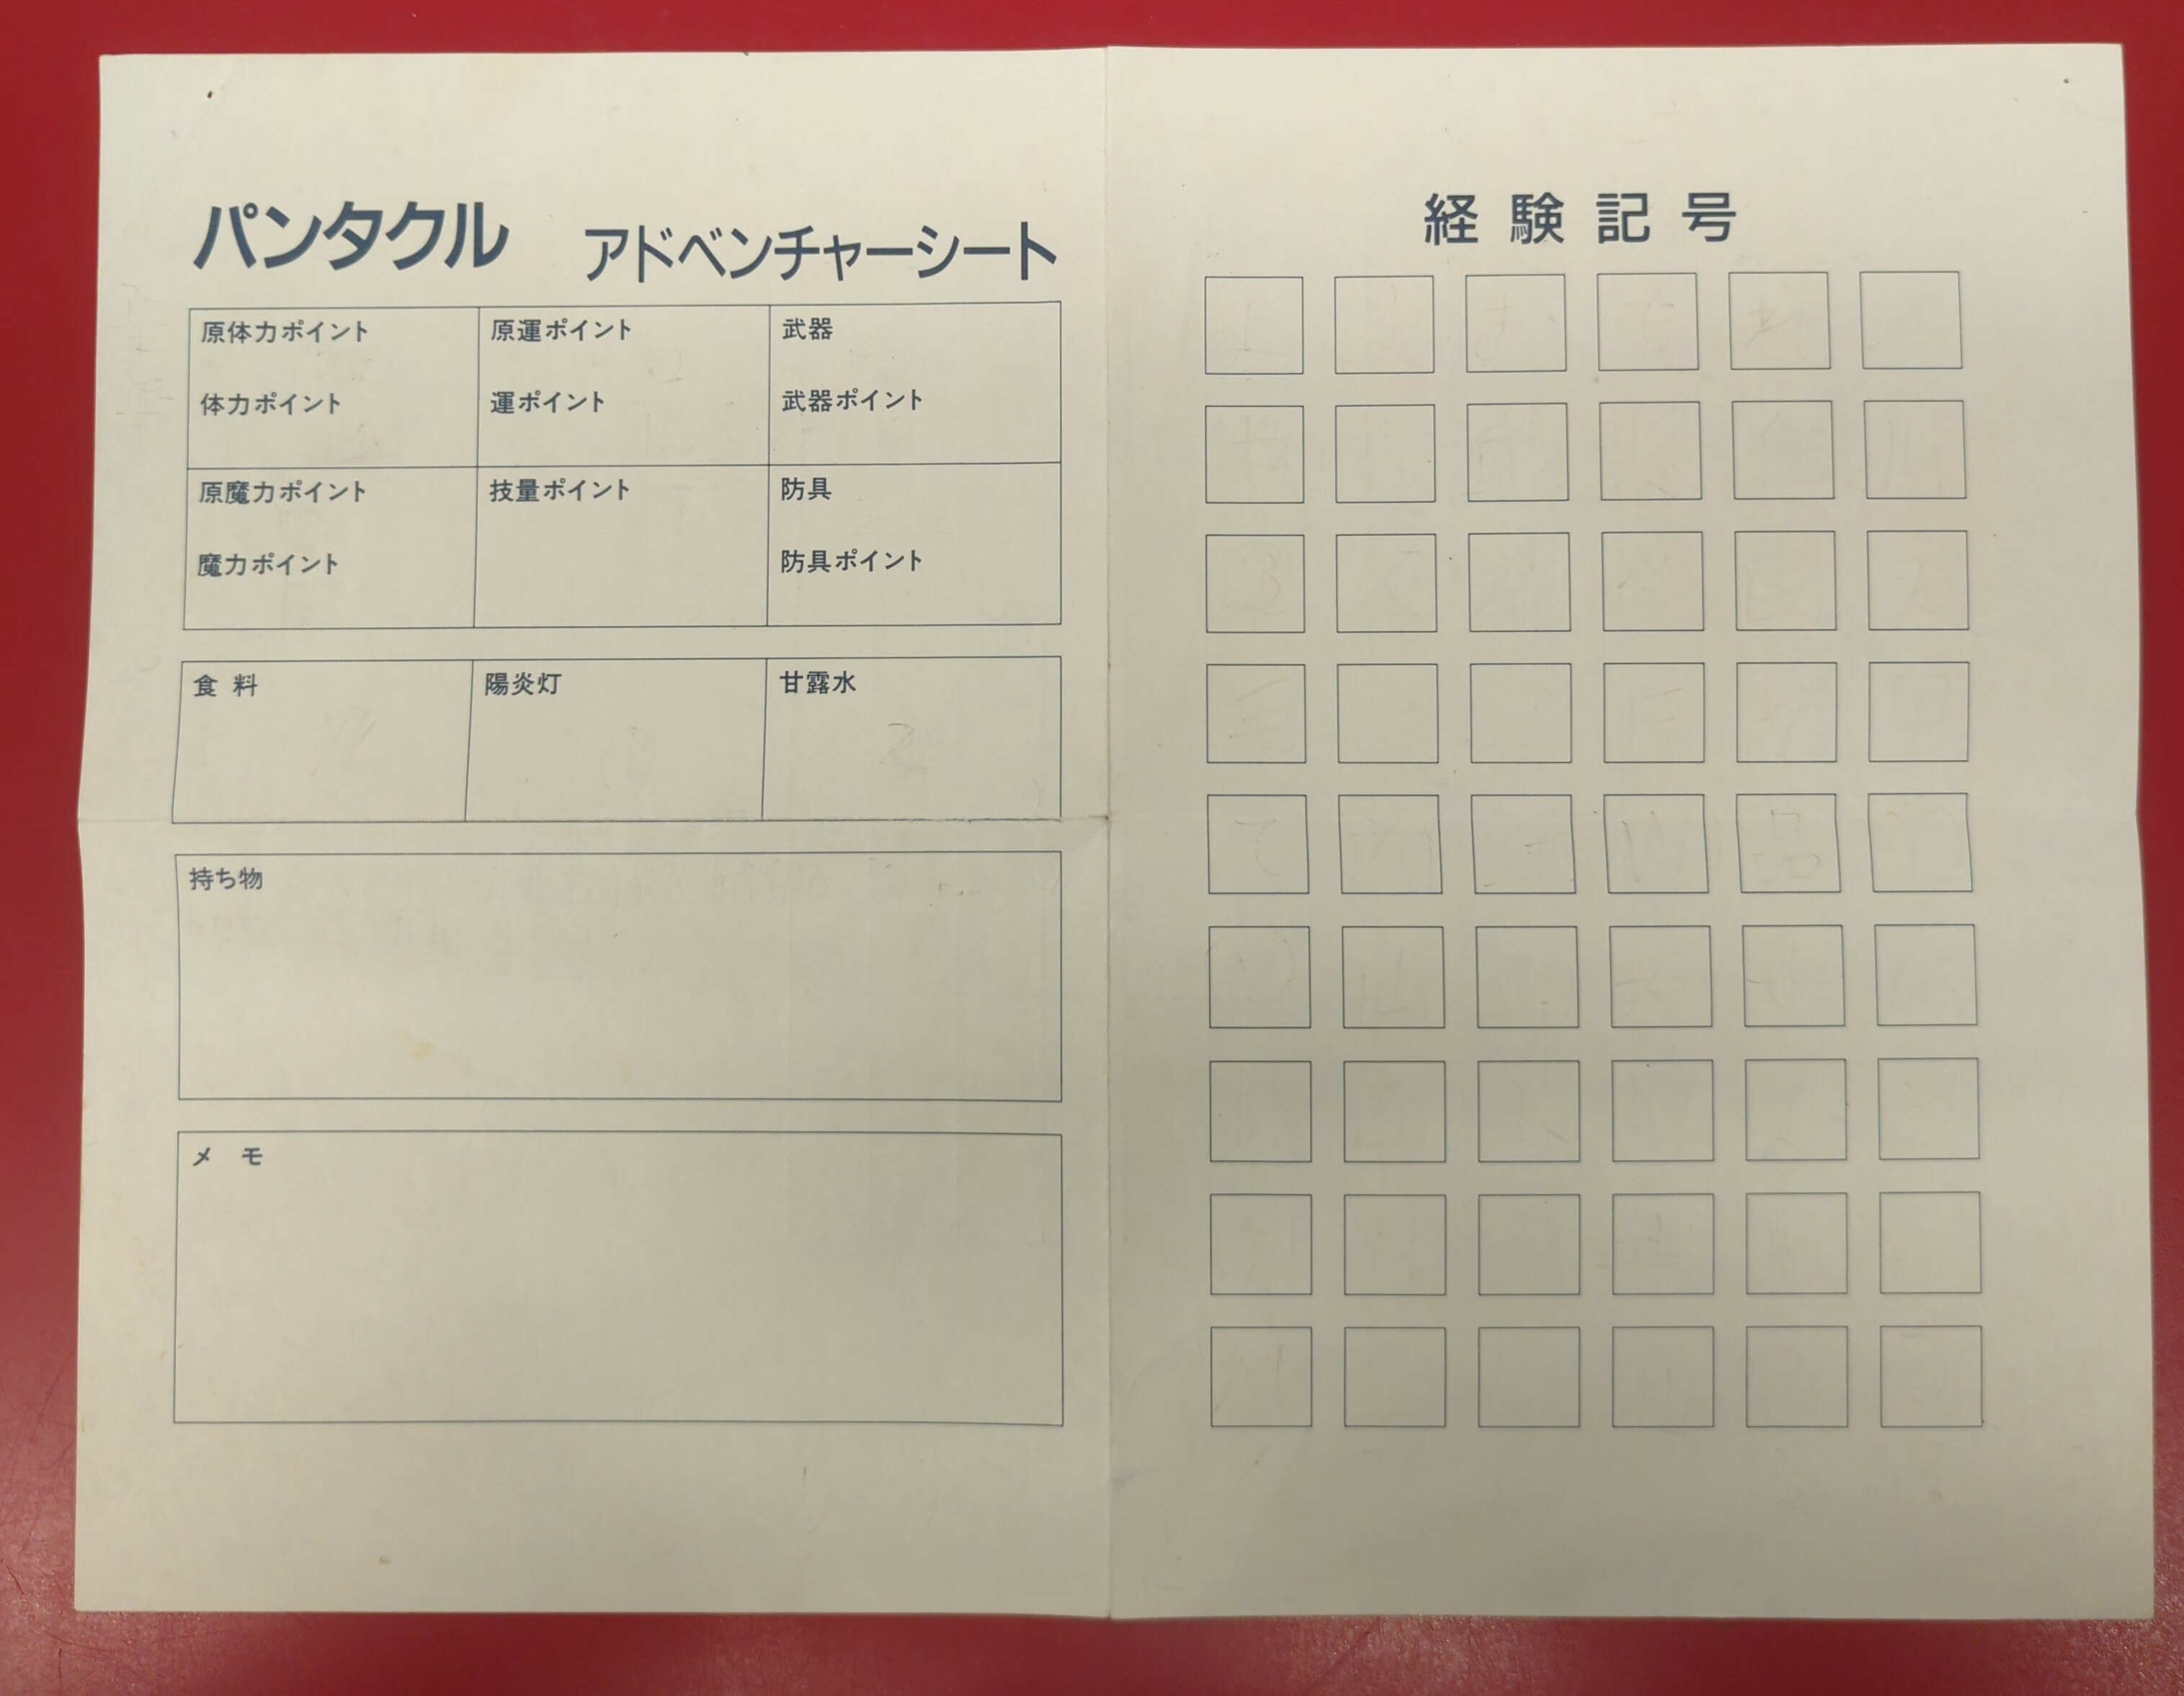 パンタクル アドベンチャーシート
原体力ポイント 原運ポイント 武器
体力ポイント 運ポイント 武器ポイント
原魔力ポイント 技量ポイント 防具
魔力ポイント 防具ポイント
食料 陽炎灯 甘露水
持ち物
メモ
経験記号